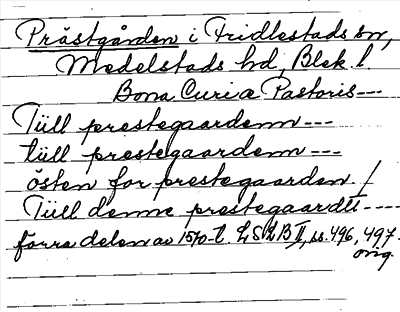 Prästgården i Fridlestads sn,
Medelstads hd, Blek. l.
Bona Curiæ Pastoris ---
Tüll prestegaardenn ---
tüll prestegaardenn ---
östen for prestegaarden. /
Tüll denne prestegaardtt ----
förra delen av 1570-t. LSLB II, ss. 496, 497.
orig.